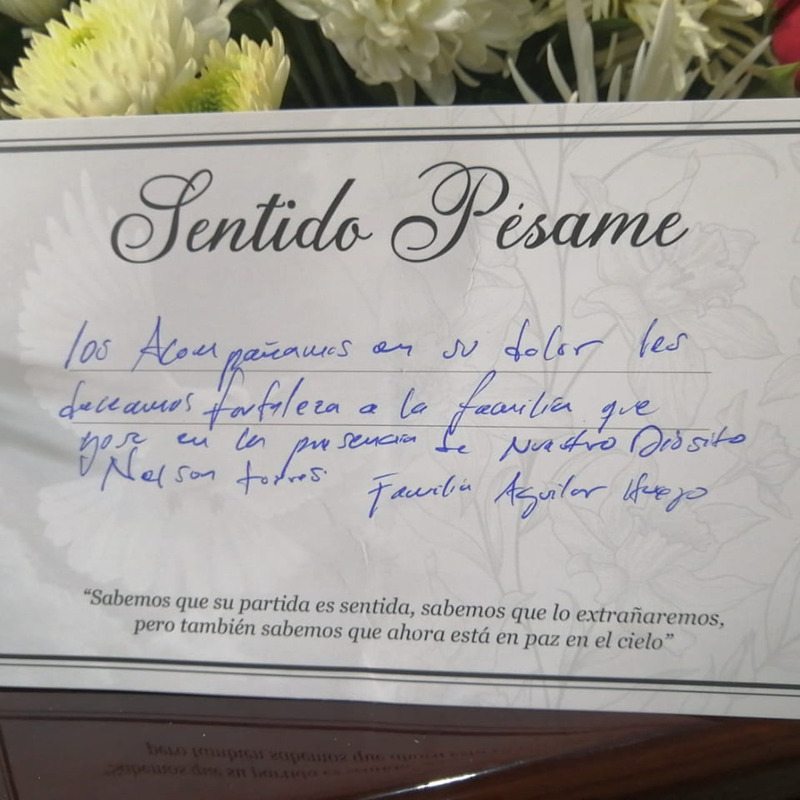 Sentido Pésame
los Acompañamos en su dolor les
deceamos fortaleza a la familia que
gose en la presencia de Nuestro Diosito
Nelson torres. Familia Aguilar
"Sabemos que su partida es sentida, sabemos que lo extrañaremos,
pero también sabemos que ahora está en paz en el cielo"